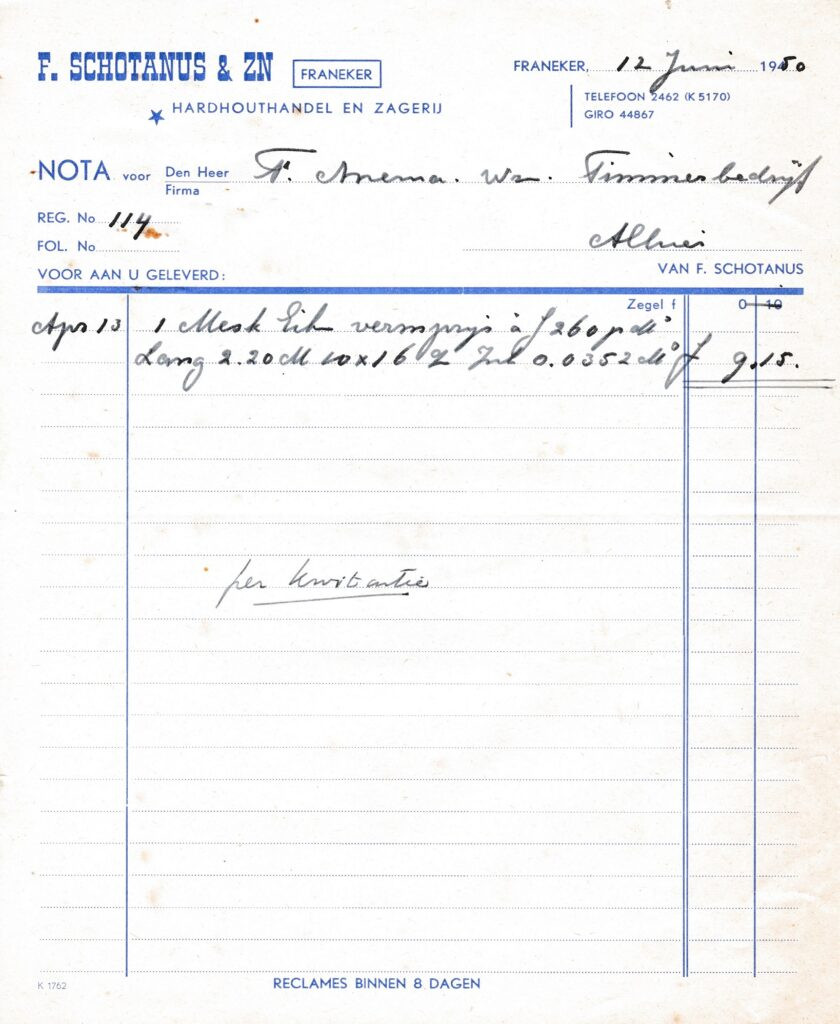 F. SCHOTANUS & ZN FRANEKER
HARDHOUTHANDEL EN ZAGERIJ
FRANEKER, 12 Juni 1950
TELEFOON 2462 (K 5170)
GIRO 44867
NOTA voor Den Heer F. Anema. Wz. Timmerbedrijf
Firma
REG. No 114
FOL. No
VOOR AAN U GELEVERD:
VAN F. SCHOTANUS
Zegel f 0 10
Apr 13 1 Mesk Eik à f 260 p M³
Lang 2.20 M 10x16 0.0352 M³ f 9.15.
per kwitantie
K 1762
RECLAMES BINNEN 8 DAGEN